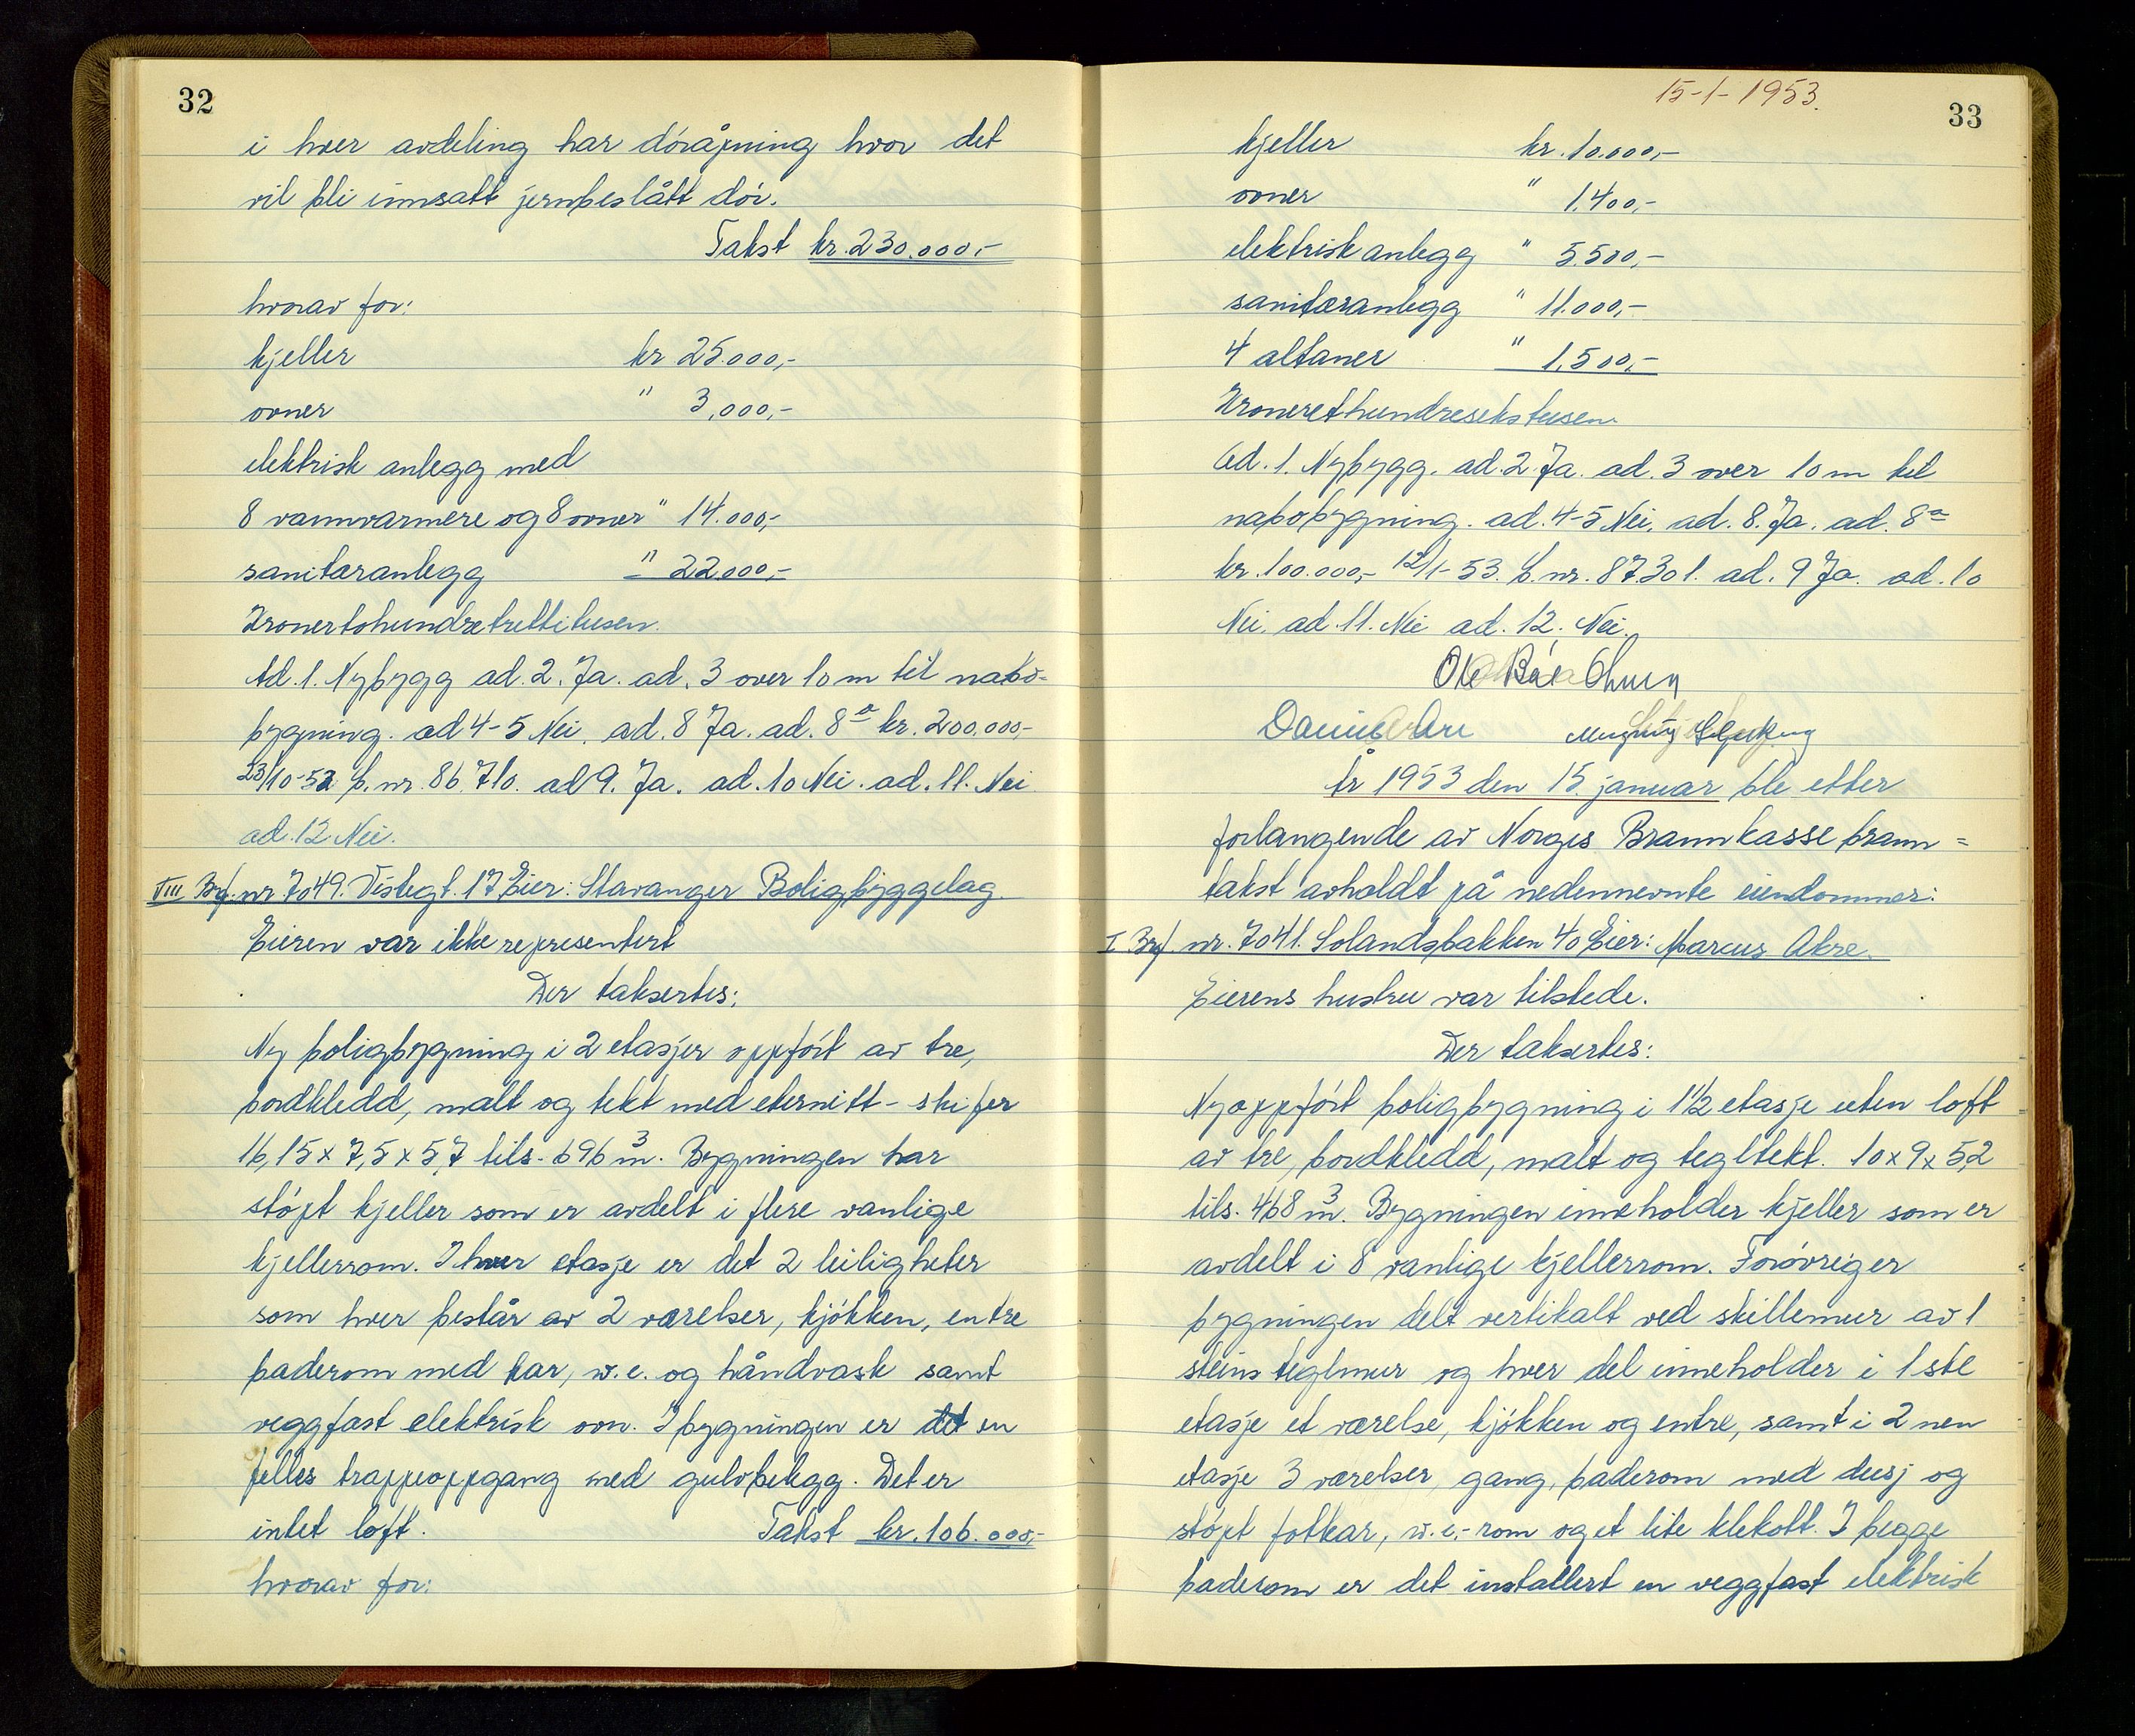 32
i hver avdeling har döråpning hvor det
vil bli innsatt jernbeslått dör.
Takst kr. 230.000,-
hvorav for:
kjeller kr 25.000,-
ovner " 3,000,-
elektrisk anlegg med
8 vannvarmere og 8 ovner " 14.000,-
sanitæranlegg " 22000,-
Kronertohundretrettitusen.
Ad. 1. Nybygg ad. 2. Ja. ad. 3 over 10 m til nabo=
bygning. ad 4-5 Nei. ad. 8 Ja. ad. 8a kr. 200.000,-
23/10-52 b. nr. 86.710. ad 9. Ja. ad. 10 Nei. ad. 11. Nei
ad. 12 Nei.
VIII Brf. nr. 7049. Vistegt. 17 Eier: Stavanger Boligbyggelag.
Eieren var ikke representert
Der takseres:
Ny boligbygning i 2 etasjer oppfört av tre,
bordkledd, malt og tekt med eternitt-skifer
16,15 x 7,5 x 5,7 tils. 696 m3. Bygningen har
stöpt kjeller som er avdelt i flere vanlige
kjellerrom. I hver etasje er det 2 leiligheter
som hver består av 2 værelser, kjökken, entre
baderom med kar, w.c. og håndvask samt
veggfast elektrisk ovn. I bygningen er det en
felles trappeoppgang med gulvbelegg. Det er
intet loft. Takst kr. 106.000,-
hvorav for:
15-1-1953.
33
kjeller kr. 10.000,-
ovner " 1.400,-
elektrisk anlegg " 5.500,-
sanitæranlegg " 11.000,-
4 altaner " 1.500,-
Kronerethundresekstusen.
Ad. 1. Nybygg. ad. 2. Ja. ad. 3 over 10 m til
nabobygning. ad. 4-5 Nei. ad. 8. Ja. ad. 8a
kr. 100.000,- 12/1-53. b. nr. 87301. ad. 9 Ja. ad. 10
Nei. ad. 11. Nei ad. 12. Nei.
År 1953 den 15. januar ble etter
forlangende av Norges Brannkasse brann=
takst avholdt på nedennevnte eiendommer:
I Brf. nr. 7041. Solandsbakken 40 Eier: Marcus Akre.
Eierens hustru var tilstede.
Der takseres:
Nyoppfört boligbygning i 1 1/2 etasje uten loft
av tre, bordkledd, malt og tegltekt. 10 x 9 x 5,2
tils. 468 m3. Bygningen inneholder kjeller som er
avdelt i 8 vanlige kjellerrom. Foróvrig er
bygningen delt vertikalt ved skillemur av 1
steins teglmur og hver del inneholder i 1ste
etasje et værelse, kjökken og entre, samt i 2 nen
etasje 3 værelser, gang, baderom med dusj og
stöpt fotkar, w.c.-rom og et lite klekott. I begge
baderom er det installert en veggfast elektrisk